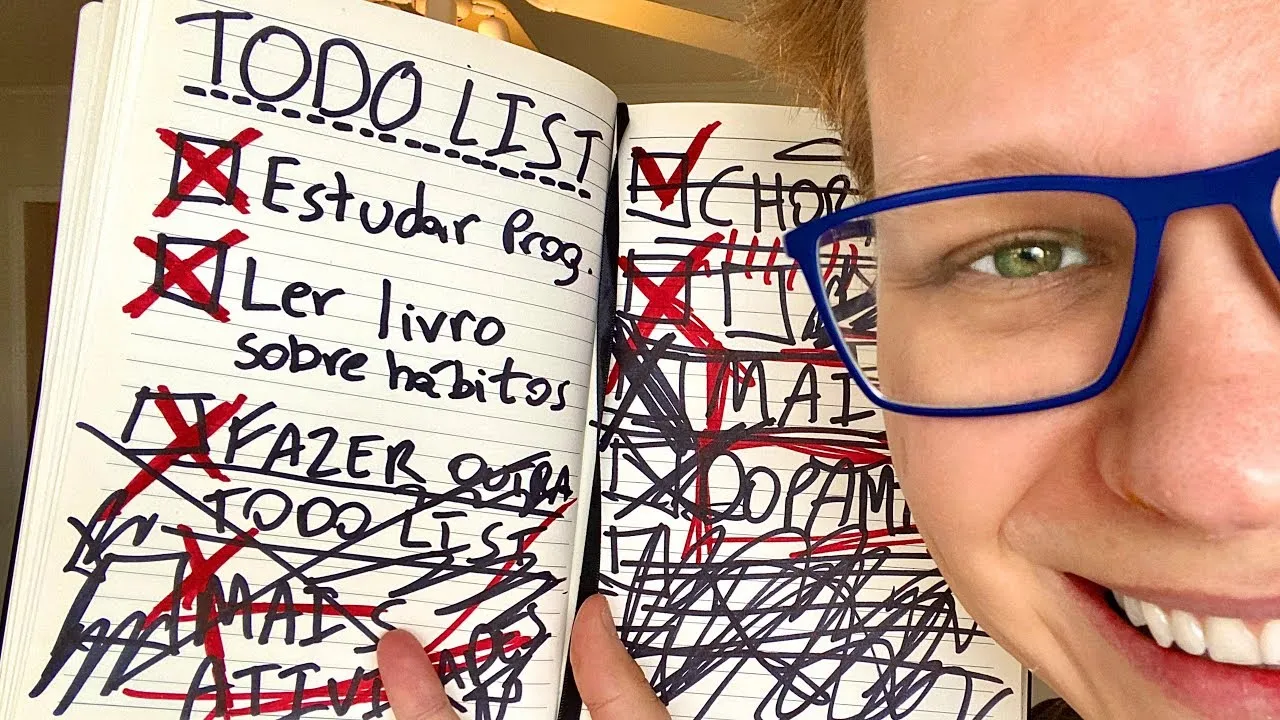 TODO LIST
Estudar Prog.
Ler livro
sobre hábitos
FAZER OUTRA
TODO LIST
MAIS
CHOR
MAI
DOPAM